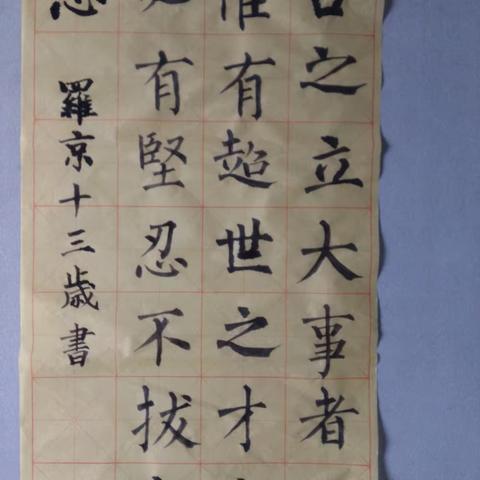 古之立大事者
惟有超世之才
必有堅忍不拔
志
羅京十三歲書